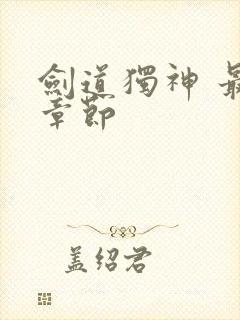 劍道獨神 最
章節
盖绍君